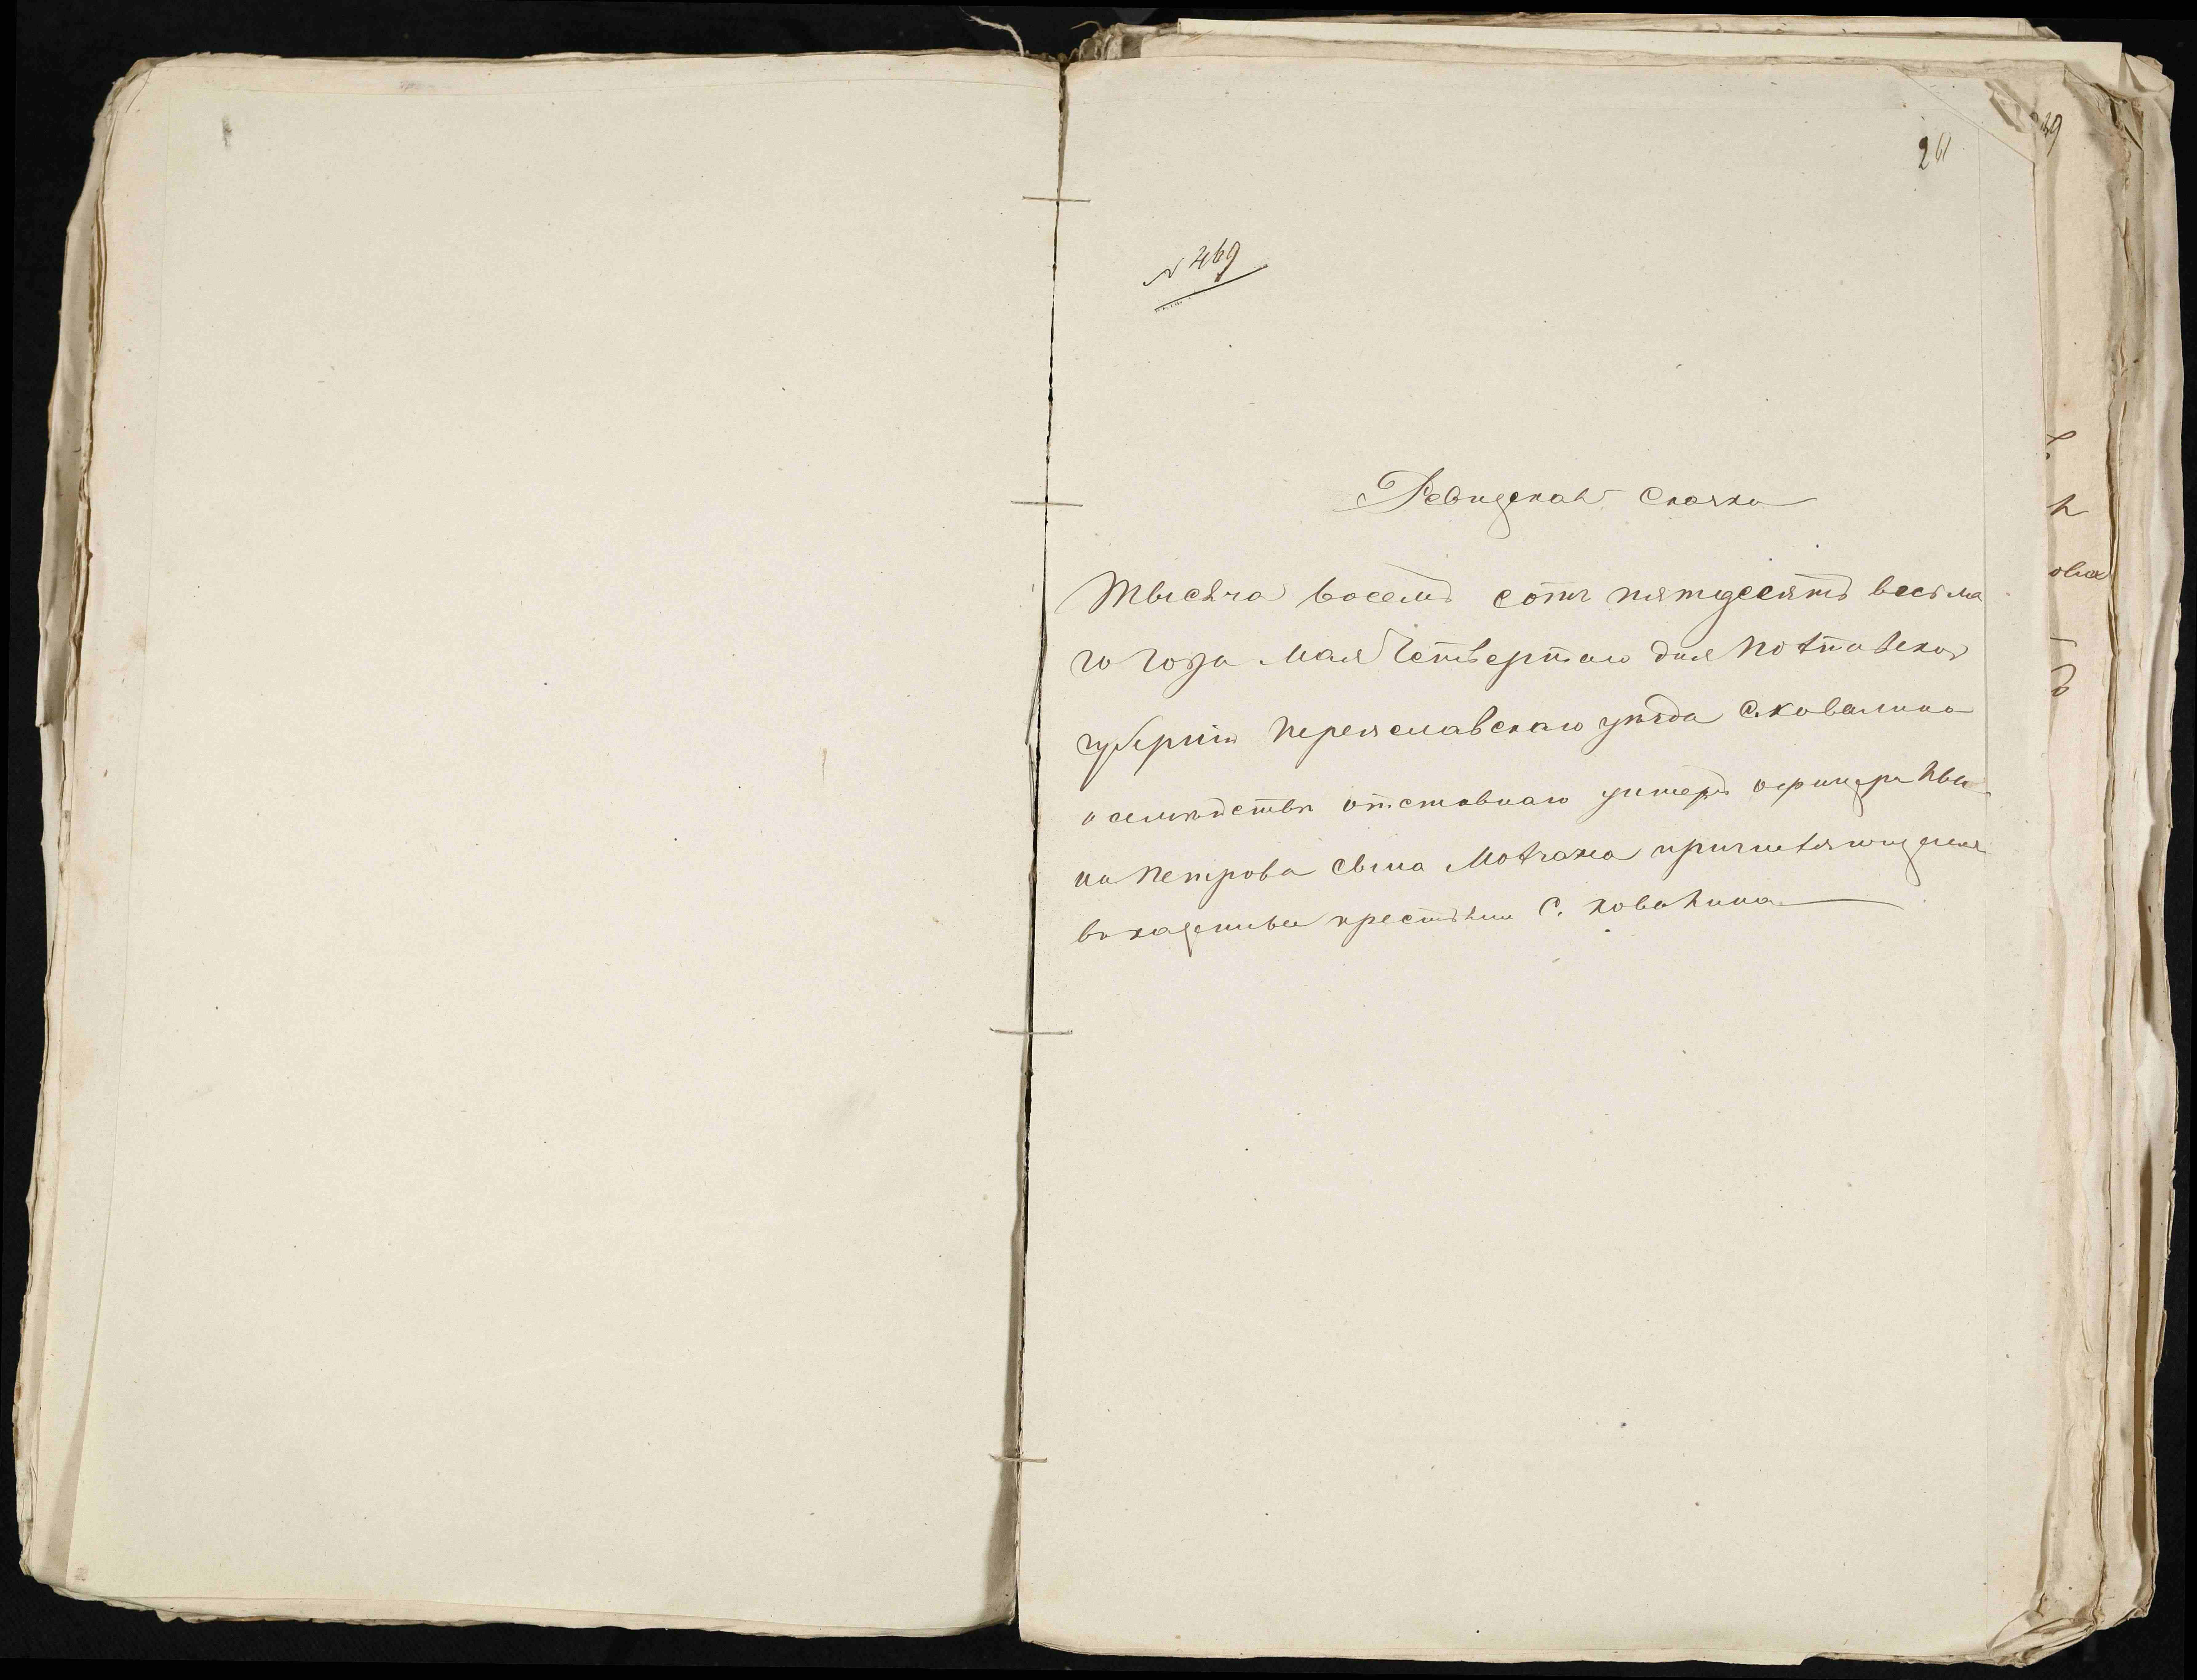 261
№ 469
Ревизская Сказка
Тысяча восемь сотъ пятдесятъ восьма
го года мая Четвертаго дня Полтавской
губерніи Переяславскаго уѣзда С. ковалина
о семѣйствѣ отставнаго унтеръ офицера Ива
на Петрова сына Мовчана
в казенные крестьяни С. ковалина